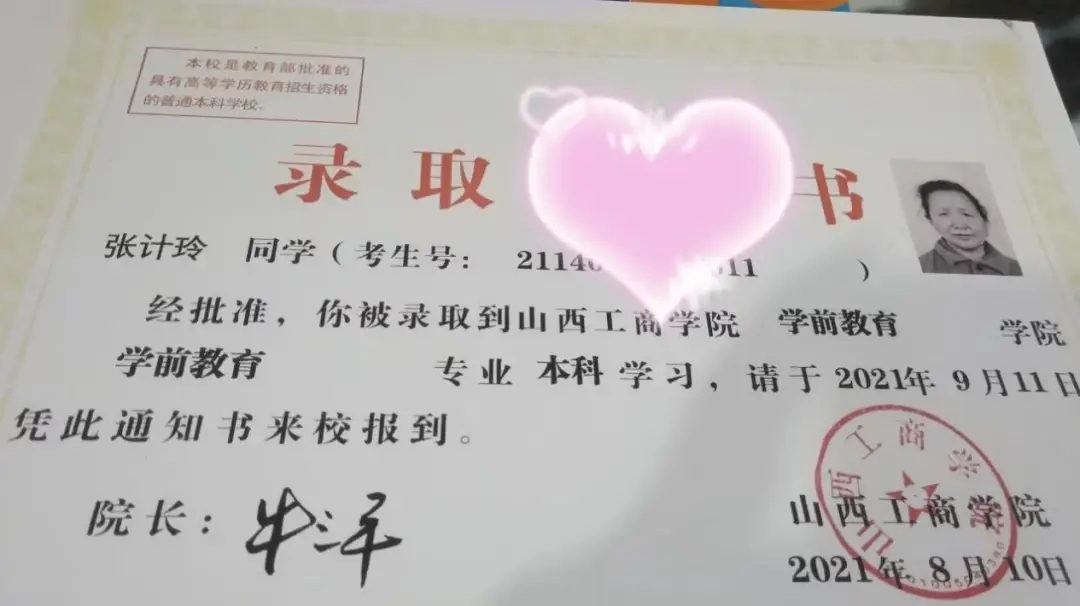 本校是教育部批准的
具有高等学历教育招生资格
的普通本科学校。
录取 书
张计玲 同学（考生号： 2114 011 ）
经批准，你被录取到山西工商学院 学前教育 学院
学前教育 专业 本科 学习，请于 2021年 9月11日
凭此通知书来校报到。
院长：
山西工商学院
山西工商学院
2021年 8月10日